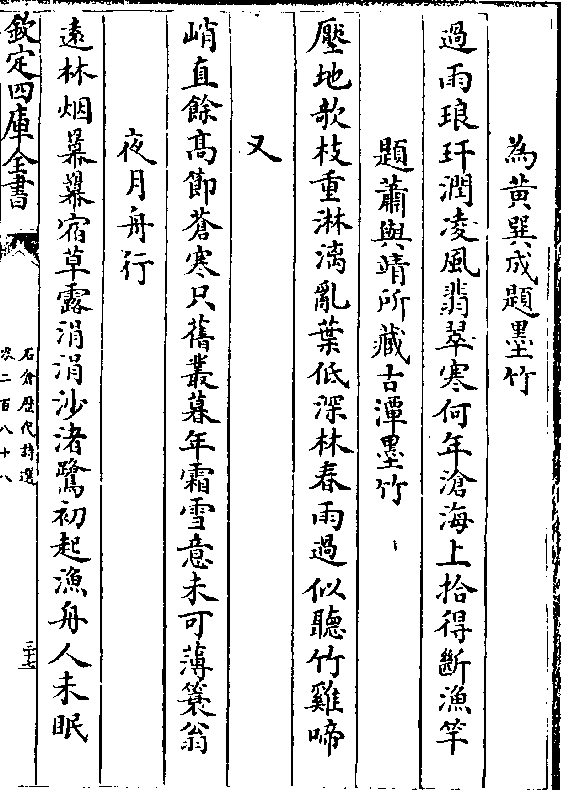 為黄巽成題墨竹
過雨琅玕潤凌風翡翠寒何年滄海上拾得斷漁竿
題蕭與靖所藏古潭墨竹
壓地欹枝重淋漓亂葉低深林春雨過似聽竹雞啼
又
峭直餘髙節蒼寒只舊叢暮年霜雪意未可薄簑翁
夜月舟行
遠林烟羃羃宿草露涓涓沙渚鷺初起漁舟人未眠
欽定四庫全書
石倉歴代詩選
卷二百八十八
三十七